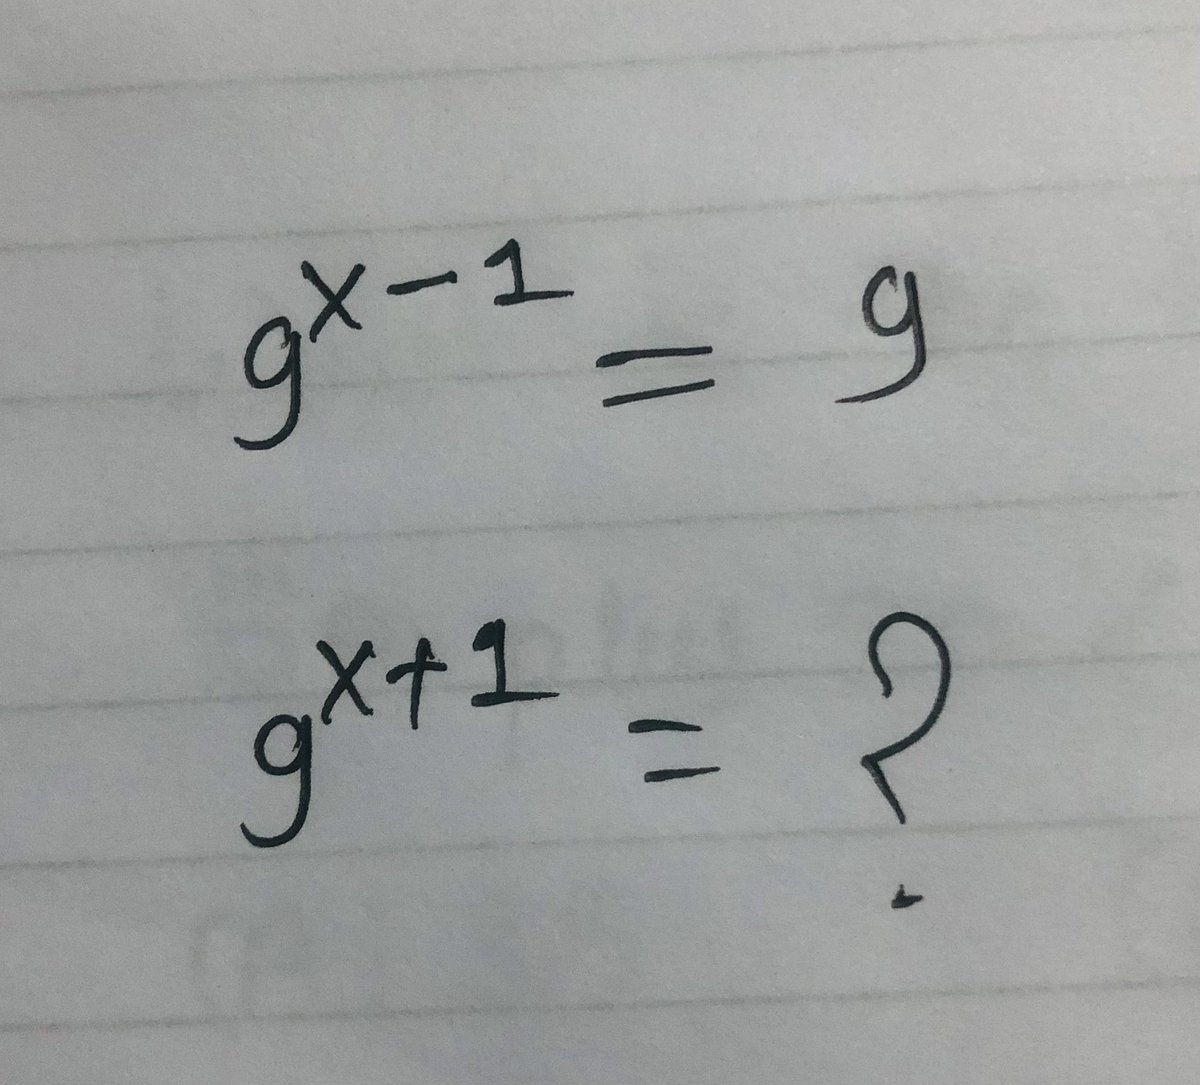 9^{x-1} = 9
9^{x+1} = ?